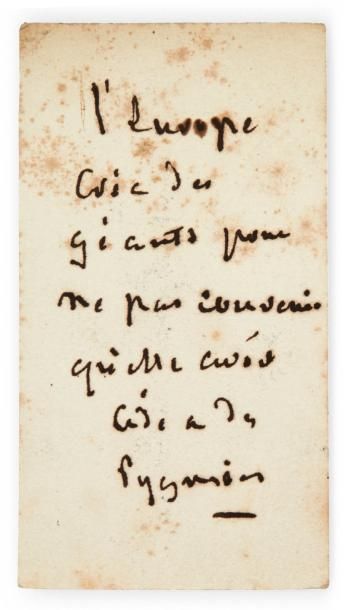 l'Europe
Crée des
géants pour
ne pas convenir
qu'elle
Cédé a des
Pygmées